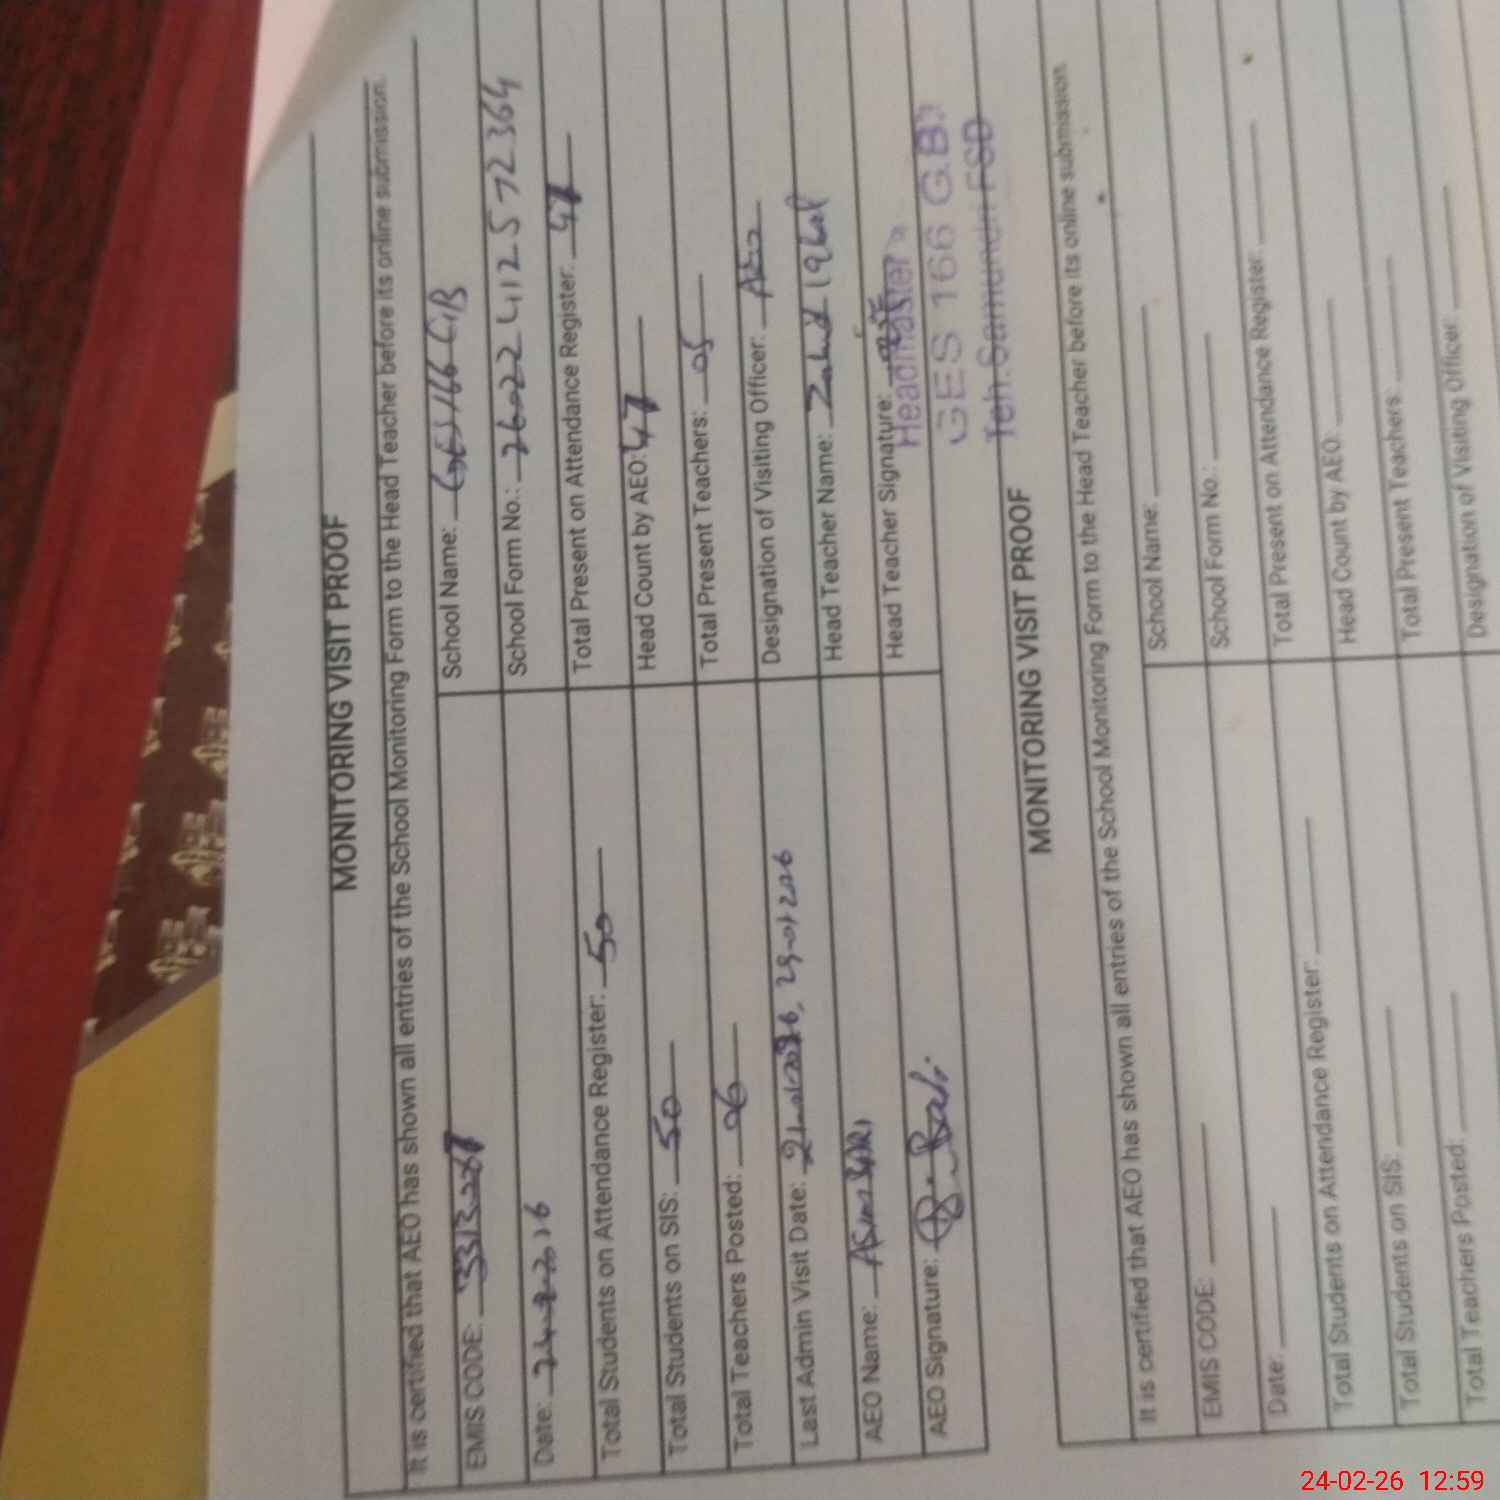 MONITORING VISIT PROOF
It is certified that AEO has shown all entries of the School Monitoring Form to the Head Teacher before its online submission.
EMIS CODE: School Name: GES 166 GB
Date: 24-2-2026 School Form No.:
Total Students on Attendance Register: 50 Total Present on Attendance Register: 47
Total Students on SIS: 50 Head Count by AEO: 47
Total Teachers Posted: 06 Total Present Teachers: 05
Last Admin Visit Date: Designation of Visiting Officer: AEO
AEO Name: Head Teacher Name: Zahid Iqbal
AEO Signature: Head Teacher Signature:
Headmaster
GES 166 G.B
Teh. Samundri FSD
MONITORING VISIT PROOF
It is certified that AEO has shown all entries of the School Monitoring Form to the Head Teacher before its online submission
EMIS CODE: School Name:
Date: School Form No.:
Total Students on Attendance Register: Total Present on Attendance Register:
Total Students on SIS: Head Count by AEO:
Total Teachers Posted: Total Present Teachers:
Designation of Visiting Officer:
24-02-26 12:59